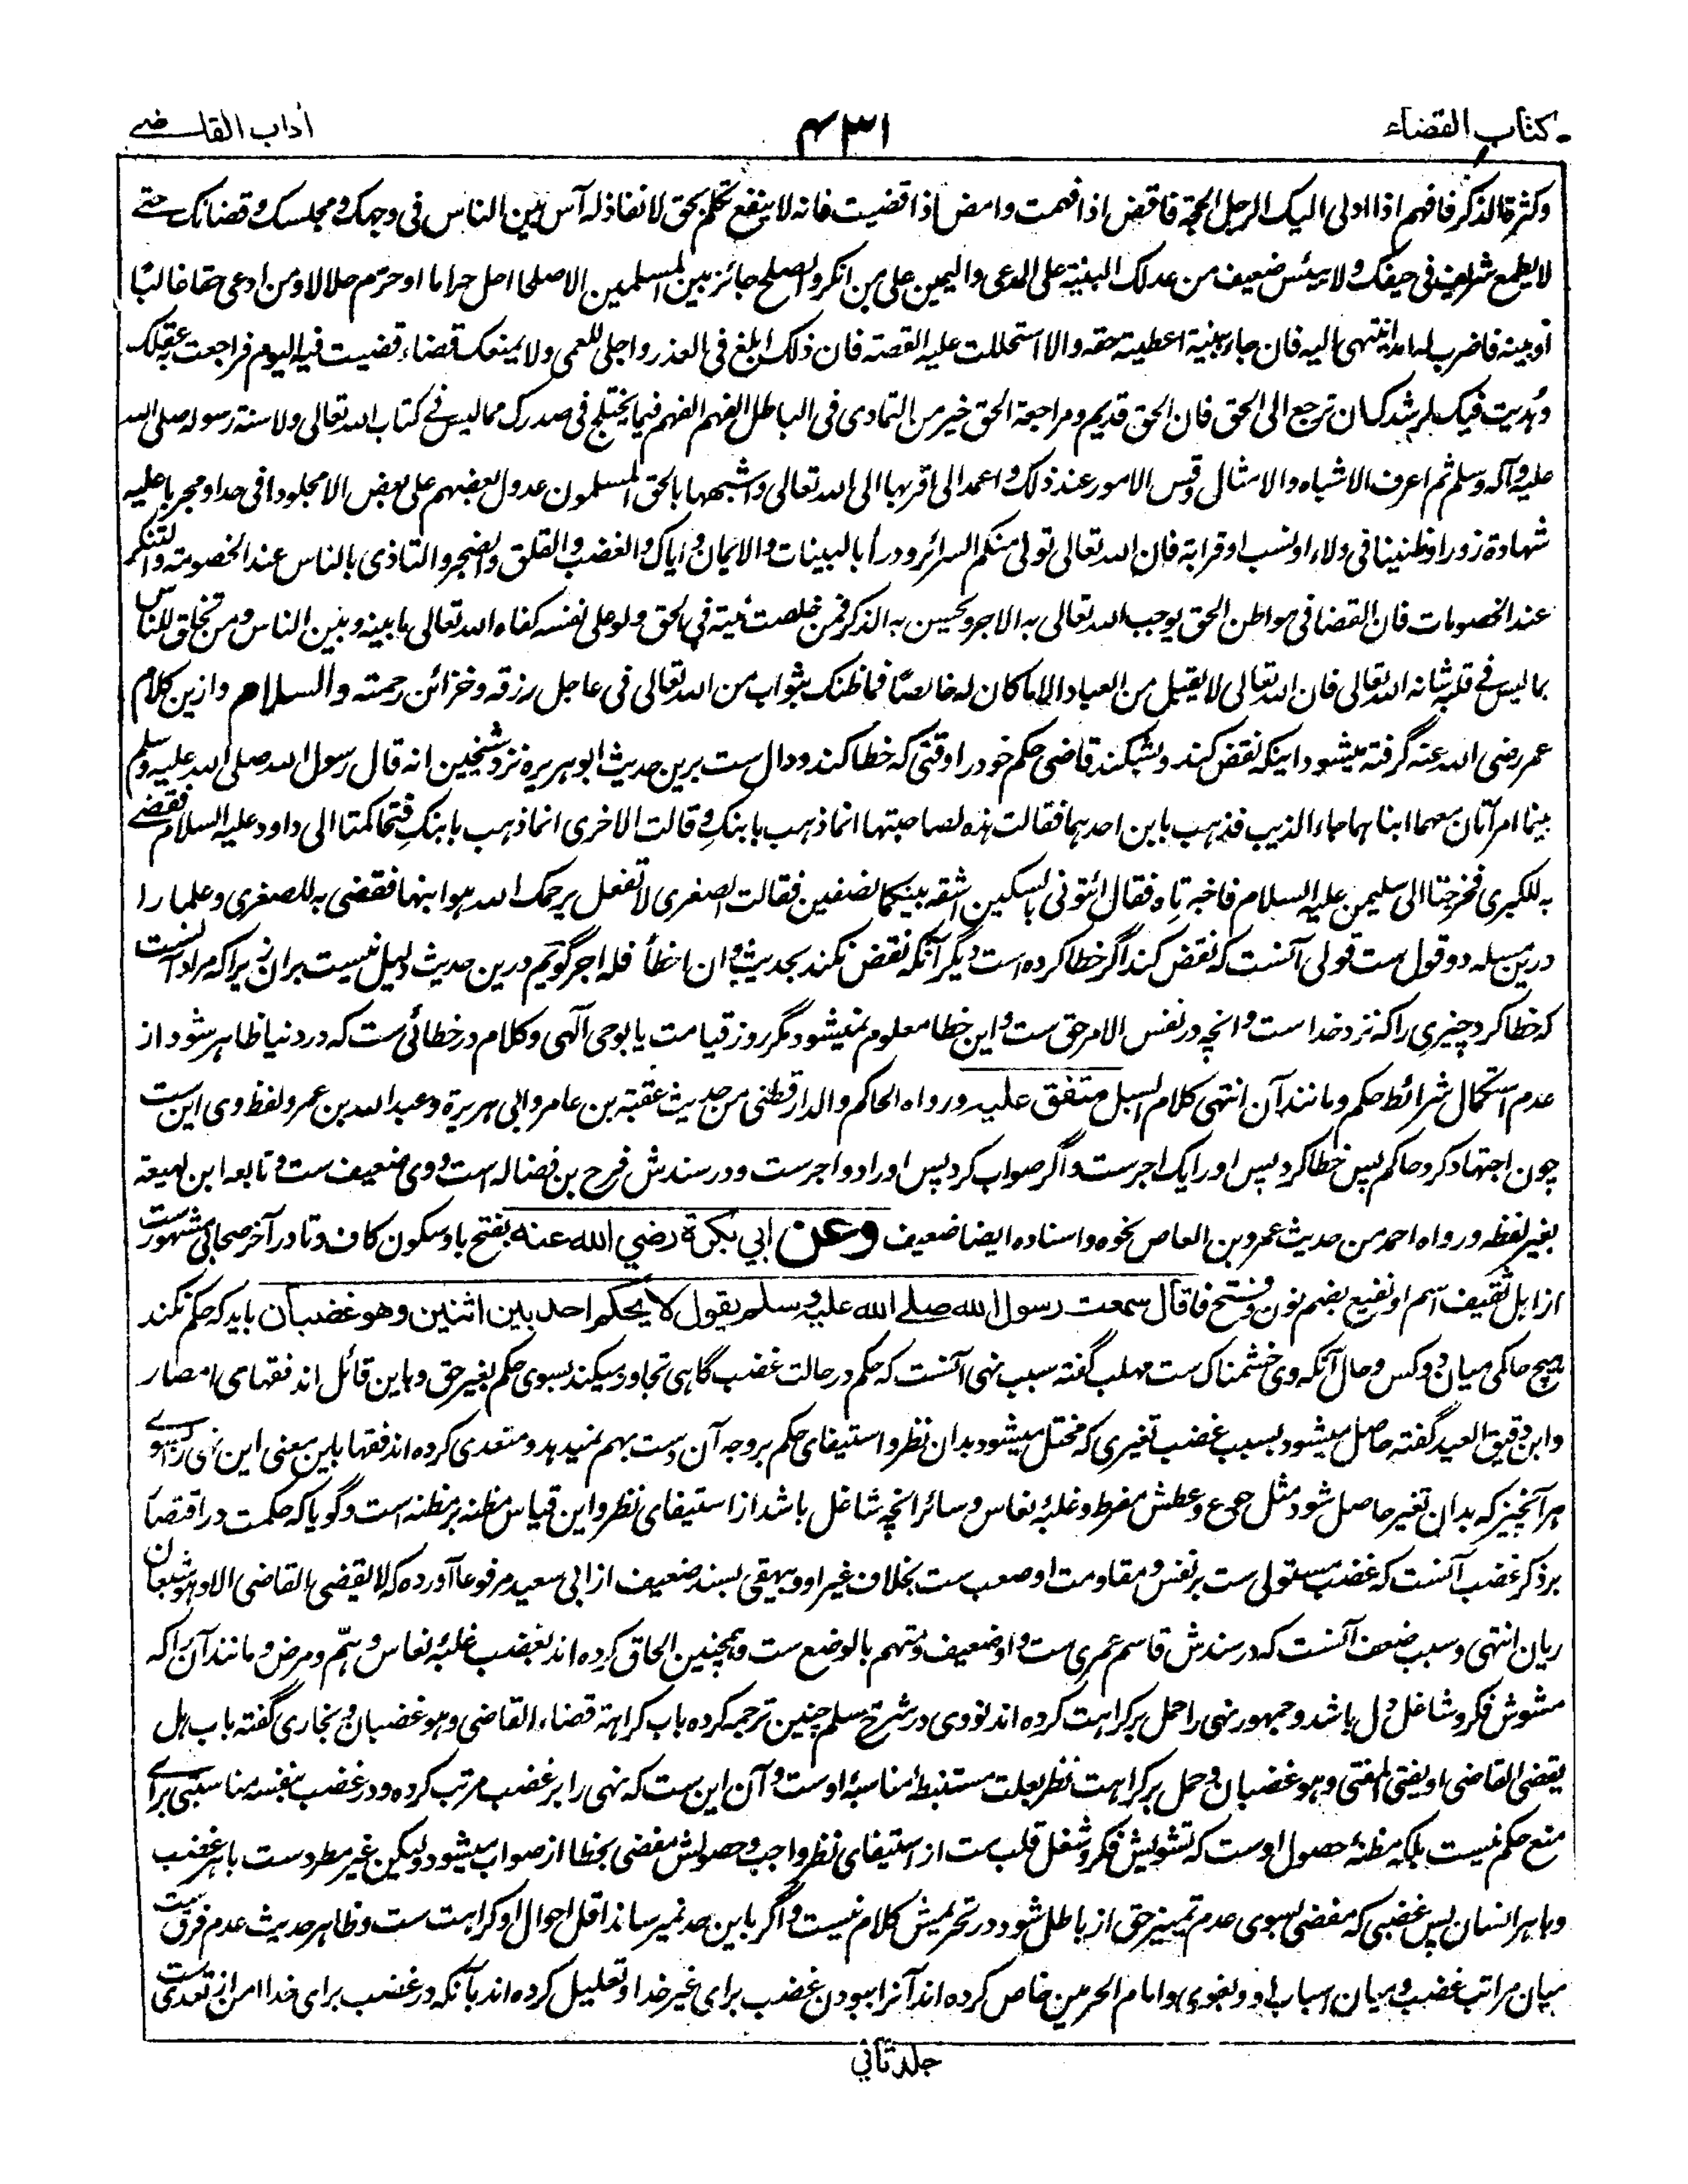 كتاب القضاء
۴۳۱
آداب القاضے
وكثرة الذكر فافهم اذا ادلى اليك الرجل الحجة فاقض اذا فهمت وامض اذا قضيت فانه لا ينفع تكلم بحق لا نفاذ له آس بين الناس فى وجهك ومجلسك وقضائك حتے
لا يطمع شريف فى حيفك ولا ييئس ضعيف من عدلك البينة على المدعى واليمين على من انكر والصلح جائز بين المسلمين الا صلحا احل حراما او حرم حلالا ومن ادعى حقا غائبا
او بينه فاضرب له امدا ينتهى اليه فان جاء ببينة اعطيته حقه والا استحللت عليه القضية فان ذلك ابلغ فى العذر واجلى للعمى ولا يمنعك قضاء قضيت فيه اليوم فراجعت به عقلك
وهديت فيك لرشدك ان ترجع الى الحق فان الحق قديم ومراجعة الحق خير من التمادى فى الباطل الفهم الفهم فيما يختلج فى صدرك مما ليس فے كتاب الله تعالى ولا سنة رسوله صلى الله
عليه وآله وسلم ثم اعرف الاشباه والامثال وقس الامور عند ذلك واعمد الى اقربها الى الله تعالى واشبهها بالحق المسلمون عدول بعضهم على بعض الا مجلودا فى حد او مجربا عليه
شهادة زور او ظنينا فى ولاء او نسب او قرابة فان الله تعالى تولى منكم السرائر ودرأ بالبينات والايمان واياك والغضب والقلق والضجر والتاذى بالناس عند الخصومة والتنكر
عند الخصومات فان القضا فى مواطن الحق يوجب الله تعالى به الاجر ويحسن به الذكر فمن خلصت نيته فے الحق ولو على نفسه كفاه الله تعالى ما بينه وبين الناس ومن تخلق للناس
بما ليس فے قلبه شانه الله تعالى فان الله تعالى لا يقبل من العباد الا ما كان له خالصًا فما ظنك بثواب من الله تعالى فى عاجل رزقه وخزائن رحمته والسلام وازين كلام
عمر رضى الله عنه گرفته ميشود اينكه نقض كند وبشكند قاضى حكم خود را وقتى كه خطا كند ودال ست برين حديث ابو هريره نزد شيخين انه قال رسول الله صلى الله عليه وسلم
بينما امرأتان معهما ابناهما جاء الذيب فذهب بابن احدهما فقالت هذه لصاحبتها انما ذهب بابنكِ وقالت الاخرى انما ذهب بابنكِ فتحاكمتا الى داود عليه السلام فقضے
به للكبرى فخرجتا الى سليمن عليه السلام فاخبرتاه فقال ائتونى بالسكين اشقه بينكما نصفين فقالت الصغرى لا تفعل يرحمك الله هو ابنها فقضى به للصغرى وعلما را
درين مسئله دو قول ست قولى آنست كه نقض كند اگر خطا كرده است ديگر آنكه نقض نكند بحديث وان اخطأ فله اجر گويم درين حديث دليل نيست بران زيراكه مراد آنست
كه خطا كرد چيزى را كه نزد خداست وآنچه در نفس الامر حق ست واين خطا معلوم نميشود مگر روز قيامت يا بوحى الٓهى وكلام در خطائى ست كه در دنيا ظاهر شود از
عدم استكمال شرائط حكم ومانند آن انتهى كلام السبل متفق عليه ورواه الحاكم والدارقطنى من حديث عقبة بن عامر وابى هريرة وعبد الله بن عمر ولفظ وى اين ست
چون اجتهاد كرد حاكم پس خطا كرد پس او را يك اجرست واگر صواب كرد پس او را دو اجرست ودر سندش فرج بن فضاله است ووى ضعيف ست وتابعه ابن لهيعة
بغير لفظه ورواه احمد من حديث عمرو بن العاص نحوه واسناده ايضا ضعيف وعن ابي بكرة رضي الله عنه بفتح با وسكون كاف وتا در آخر صحابى مشهورست
از اهل ثقيف اسم او نفيع بضم نون وفتح فا قال سمعت رسول الله صلے الله عليه وسلم يقول لا يحكم احد بين اثنين وهو غضبان بايد كه حكم نكند
هيچ حاكمى ميان دو كس وحال آنكه وى خشمناك ست مهلب گفته سبب نهى آنست كه حكم در حالت غضب گاهى تجاوز ميكند بسوى حكم بغير حق وباين قائل اند فقهاى امصار
وابن دقيق العيد گفته حاصل ميشود بسبب غضب تغيرى كه مختل ميشود بدان نظر واستيفاى حكم بروجه آن دست بهم نميدهد ومتعدى كرده اند فقها باين معنى اين نهى را بسوے
هر آنچيز كه بدان تغير حاصل شود مثل جوع وعطش مفرط وغلبۀ نعاس وسائر انچه شاغل باشد از استيفاى نظر واين قياس مظنه بر مظنه است وگويا كه حكمت در اقتصار
بر ذكر غضب آنست كه غضب مستولى ست بر نفس ومقاومت او صعب ست بخلاف غير او وبيهقى بسند ضعيف از ابى سعيد مرفوعا آورده كه لا يقضى القاضى الا وهو شبعان
ريان انتهى وسبب ضعف آنست كه در سندش قاسم عمرى ست واو ضعيف ومتهم بالوضع ست وهمچنين الحاق كرده اند بغضب غلبۀ نعاس وهمّ ومرض ومانند آن را كه
مشوش فكر وشاغل دل باشد وجمهور نهى را حمل بر كراهت كرده اند نووى در شرح مسلم چنين ترجمه كرده باب كراهة قضاء القاضى وهو غضبان وبخارى گفته باب هل
يقضى القاضى او يفتى المفتى وهو غضبان وحمل بر كراهت نظر بعلت مستنبطه مناسبۀ اوست وآن اين ست كه نهى را بر غضب مرتب كرده ودر غضب بنفسه مناسبتى براے
منع حكم نيست بلكه مظنۀ حصول اوست كه تشويش فكر وشغل قلب ست از استيفاى نظر واجب وحصولش مفضى بخطا از صواب ميشود وليكن غير مطردست با هر غضب
وبا هر انسان پس غضبى كه مفضى بسوى عدم تمييز حق از باطل شود در تحريمش كلام نيست واگر باين حد نميرساند اقل احوال او كراهت ست وظاهر حديث عدم فرق ست
ميان مراتب غضب وميان اسباب او وبغوى وامام الحرمين خاص كرده اند آنرا ببودن غضب براى غير خدا وتعليل كرده اند بآنكه در غضب براى خدا امن از تعدى ست
جلد ثاني